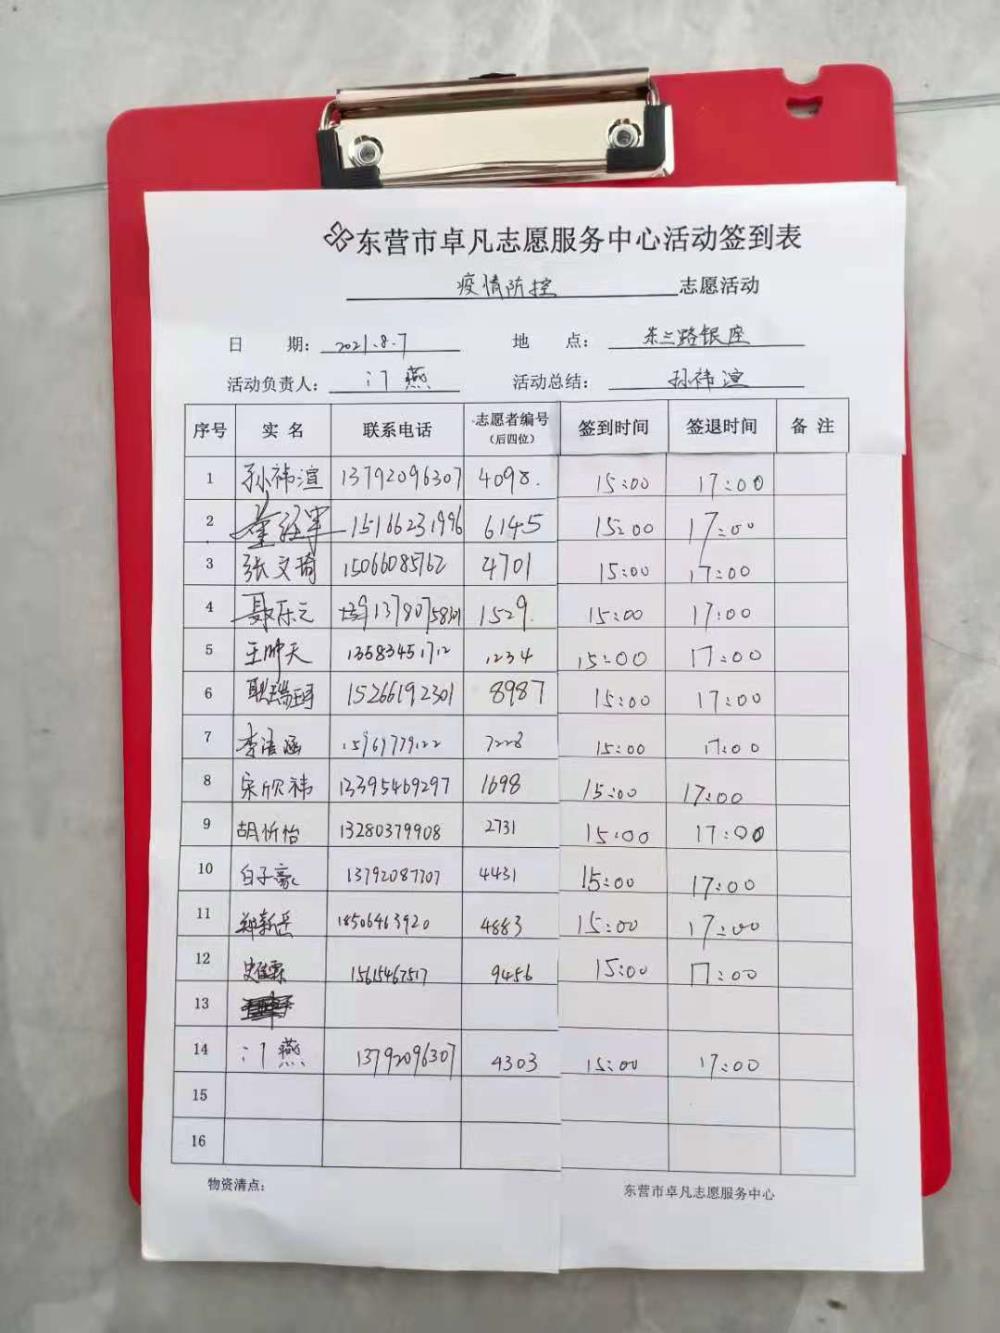 东营市卓凡志愿服务中心活动签到表
疫情防控 志愿活动
日 期: 2021.8.7 地 点: 东三路银座
活动负责人: 门燕 活动总结: 孙祎渲
序号 实名 联系电话 志愿者编号(后四位) 签到时间 签退时间 备注
1 孙祎渲 13792096307 4098. 15:00 17:00
2 15166231996 6145 15:00 17:00
3 张文琦 15066085762 4701 15:00 17:00
4 聂乐元 1529. 15:00 17:00
5 王帅天 13583451712 1234 15:00 17:00
6 耿瑞珂 15266192301 8987 15:00 17:00
7 李浩涵 7228 15:00 17:00
8 宋欣祎 13395469297 1698 15:00 17:00
9 胡忻怡 13280379908 2731 15:00 17:00
10 白子豪 13792087707 4431 15:00 17:00
11 郑新岳 18506463920 4883 15:00 17:00
12 15615467517 9456 15:00 17:00
13
14 门燕 13792096307 4303 15:00 17:00
15
16
物资清点: 东营市卓凡志愿服务中心